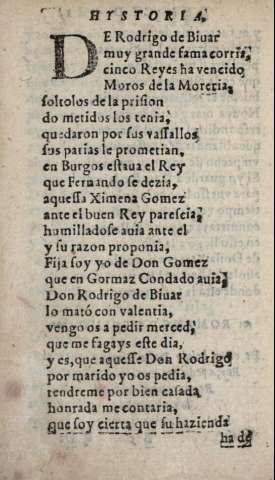 HYSTORIA
DE Rodrigo de Biuar
muy grande fama corria,
cinco Reyes ha vencido
Moros de la Moreria,
soltolos de la prision
do metidos los tenia,
quedaron por sus vassallos
sus parias le prometian,
en Burgos estaua el Rey
que Fernando se dezia,
aquessa Ximena Gomez
ante el buen Rey parescia,
humilladose auia ante el
y su razon proponia,
Fija soy yo de Don Gomez
que en Gormaz Condado auia,
Don Rodrigo de Biuar
lo mató con valentia,
vengo os a pedir merced,
que me fagays este dia,
y es, que aquesse Don Rodrigo
por marido yo os pedia,
tendreme por bien casada
honrada me contaria,
que soy cierta que su hazienda
ha de